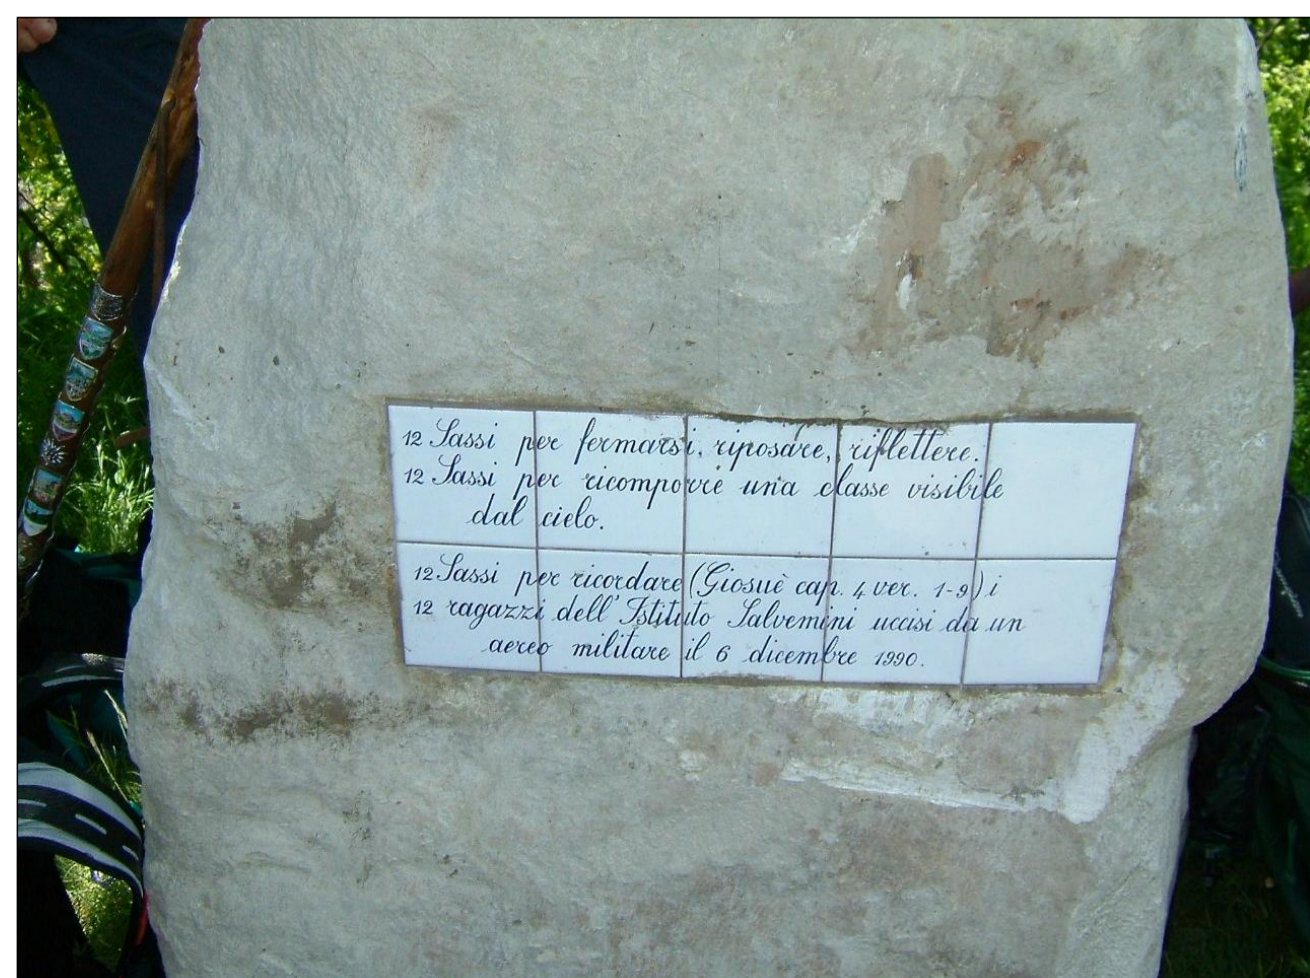 12 Sassi per fermarsi, riposare, riflettere.
12 Sassi per ricomporre una classe visibile
dal cielo.
12 Sassi per ricordare (Giosuè cap. 4 ver. 1-9) i
12 ragazzi dell'Istituto Salvemini uccisi da un
aereo militare il 6 dicembre 1990.